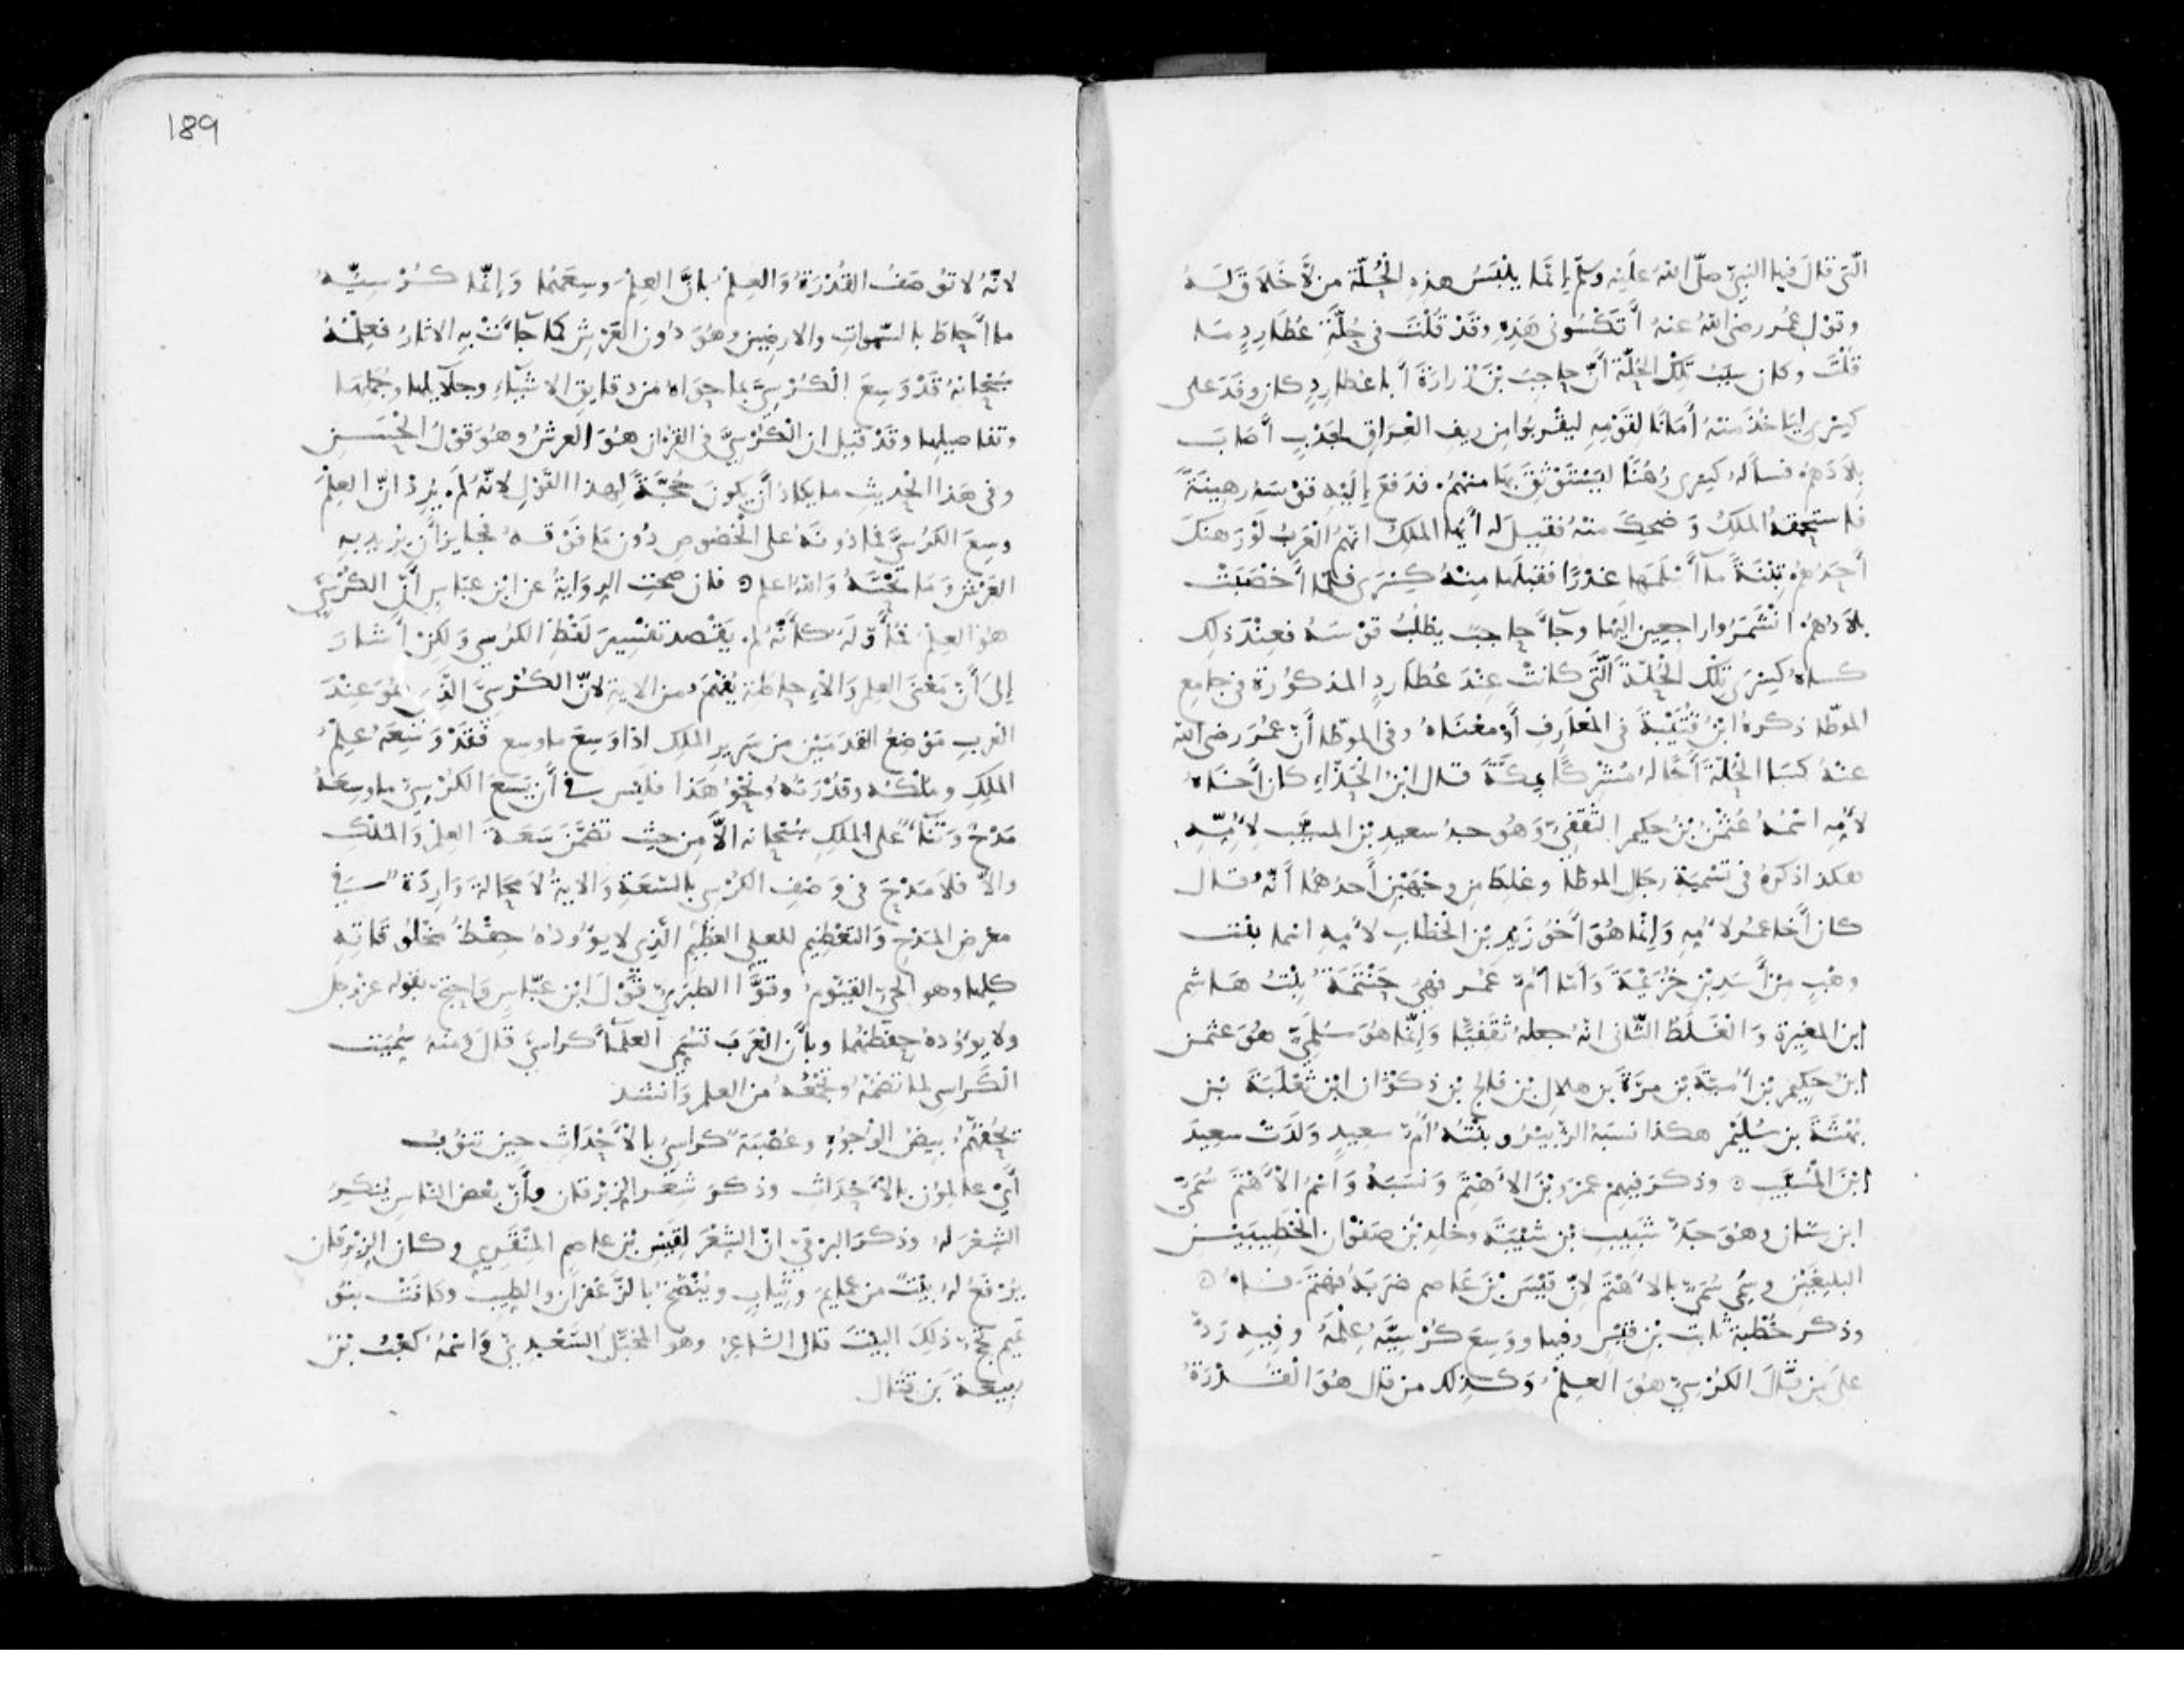 الّتى قال فيها النبيّ صلّى الله عليه وسلّم إنّما يلبس هذه الحُلّة من لا خلاق له
وقول عمر رضى الله عنه أتكسونى هذه وقد قلت فى حُلّة عُطارد ما
قلت وكان سبب تلك الحلّة أنّ حاجب بن زرارة أبا عطارد كان وفد على
كسرى ليأخذ منه أمانًا لقومه ليقربوا من ريف العراق لجدب أصاب
بلادهم فسأله كسرى رهنًا ليستوثق بها منهم فدفع إليه قوسه رهينة
فاستحمقه الملك وضحك منه فقيل له أيّها الملك انّهم العرب لو رهنك
أحدهم تبنة ما أسلمها غدرًا فقبلها منه كسرى فلمّا أخصبت
بلادهم انشمروا راجعين اليها وجاء حاجب يطلب قوسه فعند ذلك
كساه كسرى تلك الحلّة الّتى كانت عند عطارد المذكورة فى جامع
الموطّا ذكره ابن قتيبة فى المعارف أو معناه وفى الموطّا أنّ عمر رضى الله
عنه كسا الحلّة أخا له مشركًا بمكّة قال ابن الحذّاء كان أخاه
لأمّه اسمه عثمن بن حكيم الثقفيّ وهو جد سعيد بن المسيّب لأمّه
هكذا ذكره فى تسمية رجال الموطّا وغلط من وجهين أحدهما أنّه قال
كان أخا عمر لأمّه وإنّما هو أخو زيد بن الخطّاب لأمّه اسما بنت
وهب من أسد بن خزيمة وأمّا أمّ عمر فهى حنتمة بنت هاشم
ابن المغيرة والغلط الثّانى انّه جعله ثقفيًّا وإنّما هو سلميّ هو عثمن
ابن حكيم بن أميّة بن مرّة بن هلال بن فالج بن ذكوان ابن ثعلبة بن
بهثة بن سليم هكذا نسبه الزّبير وبنته أمّ سعيد ولدت سعيد
ابن المسيّب ⊙ وذكر فيهم عمرو بن الأهتم ونسبه واسم الأهتم سُمَيّ
ابن سنان وهو جدّ شبيب بن شيبة وخلد بن صفوان الخطيبين
البليغين وسُمّي سُمَيّ بالأهتم لانّ قيس بن عاصم ضربه فهتم فاه ⊙
وذكر خطبة ثابت بن قيس وفيها ووسع كرسيّه علمه وفيه ردّ
على من قال الكرسيّ هو العلم وكذلك من قال هو القدرة
189
لانّه لا توصف القدرة والعلم بانّ العلم وسعهما وإنّما كرسيّه
ما أحاط بالسّموات والارضين وهو دون العرش كما جاءت به الاثار فعلمه
سبحانه قد وسع الكرسيّ بما حواه من دقايق الاشياء وجلايلها وجملها
وتفاصيلها وقد قيل ان الكرسيّ فى القران هو العرش وهو قول الحسن
وفى هذا الحديث ما يكاد أن يكون حجّة لهذا القول لانّه لم يرد انّ العلم
وسع الكرسيّ فما دونه على الخصوص دون ما فوقه فجايز أن يريد به
العرش وما تحته والله اعلم ⊙ فان صحّت الرواية عن ابن عبّاس أنّ الكرسيّ
هو العلم فمأوّلة كأنّه لم يقصد تفسير لفظ الكرسي ولكن أشار
إلى أنّ معنى العلم والإحاطة يفهم من الاية لانّ الكرسيّ الّذى هو عند
العرب موضع القدمين من سرير الملك اذا وسع ما وسع فقد وسعه علم
الملك وملكه وقدرته ونحو هذا فليس فى أن يسع الكرسيّ ما وسعه
مدح وثناء على الملك سبحانه الاّ من حيث تضمّن سعة العلم والملك
والاّ فلا مدح فى وصف الكرسي بالسّعة والاية لا محالة واردة فى
معرض المدح والتعظيم للعلى العظيم الّذى لا يؤوده حفظ مخلوقاته
كلها وهو الحيّ القيّوم وقوّا الطبريّ قول ابن عبّاس واحتجّ بقوله عز وجل
ولا يؤوده حفظهما وبأنّ العرب تسمّى العلماء كراسيّ قال ومنه سُمّيت
الكرّاسى لما تضمّنه وتجمعه من العلم وانشد
تحفّهم بيض الوجوه وعصبة كراسيّ بالأحداث حين تنوب
أيْ عالمون بالأحداث وذكر شعر الزبرقان وأنّ بعض النّاس ينكر
الشعر له وذكر البرقيّ انّ الشعر لقيس بن عاصم المنقرى وكان الزبرقان
يرفع له بيت من عمايم وثياب وينضخ بالزّعفران والطيب وكانت بنو
تميم تحجّ ذلك البيت قال الشاعر وهو المخبّل السّعديّ واسمه كعب بن
ربيعة بن قتال